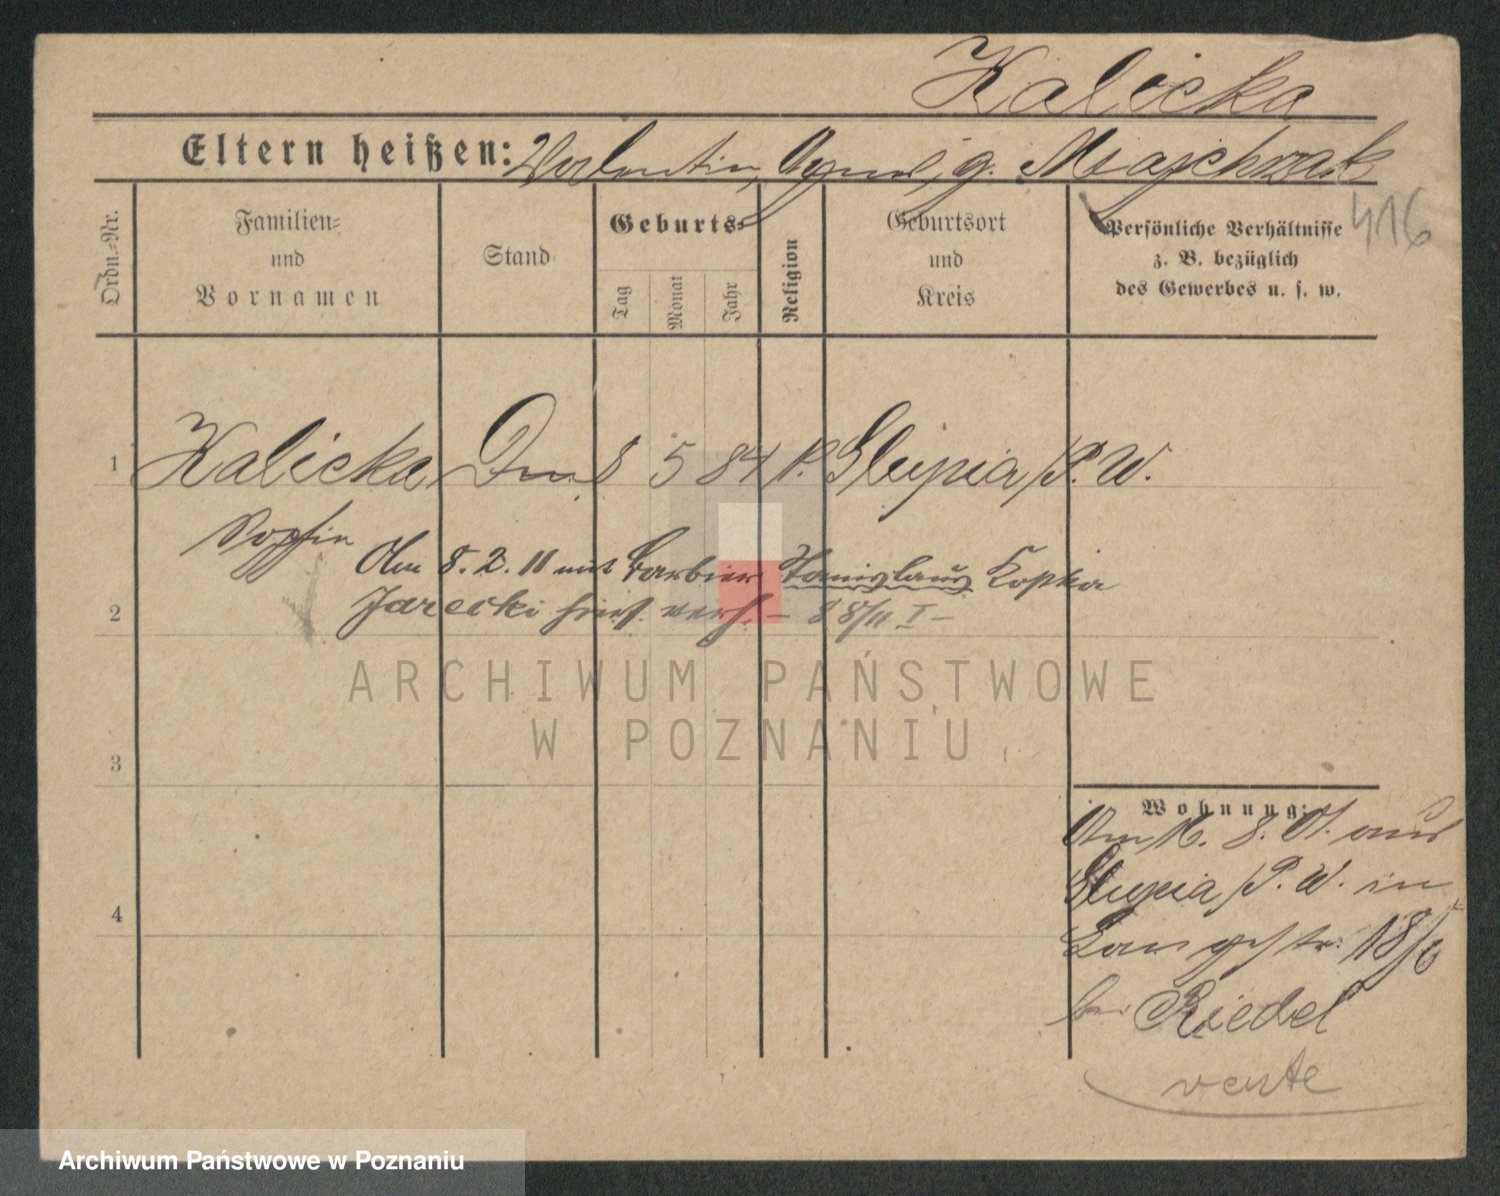 Kalicka
Eltern heißen: Valentin, Agnes, g. Majchrzak
416
Ordn.-Nr.
Familien-
und
Vornamen
Stand
Geburts-
Tag
Monat
Jahr
Religion
Geburtsort
und
Kreis
Persönliche Verhältnisse
z. B. bezüglich
des Gewerbes u. s. w.
1 Kalicka 8 5 84 k. Slupia /P. W.
Sophie
Am 8. 2. 11 mit Barbier Stanislaus Kopka
2 Jarecki hier verh. – 88/11 I –
ARCHIWUM PAŃSTWOWE
W POZNANIU
3
Wohnung:
Am 16. 8. 01. aus
Slupia /P. W. in
4
Langestr. 18/6
bei Riedel
verte
Archiwum Państwowe w Poznaniu